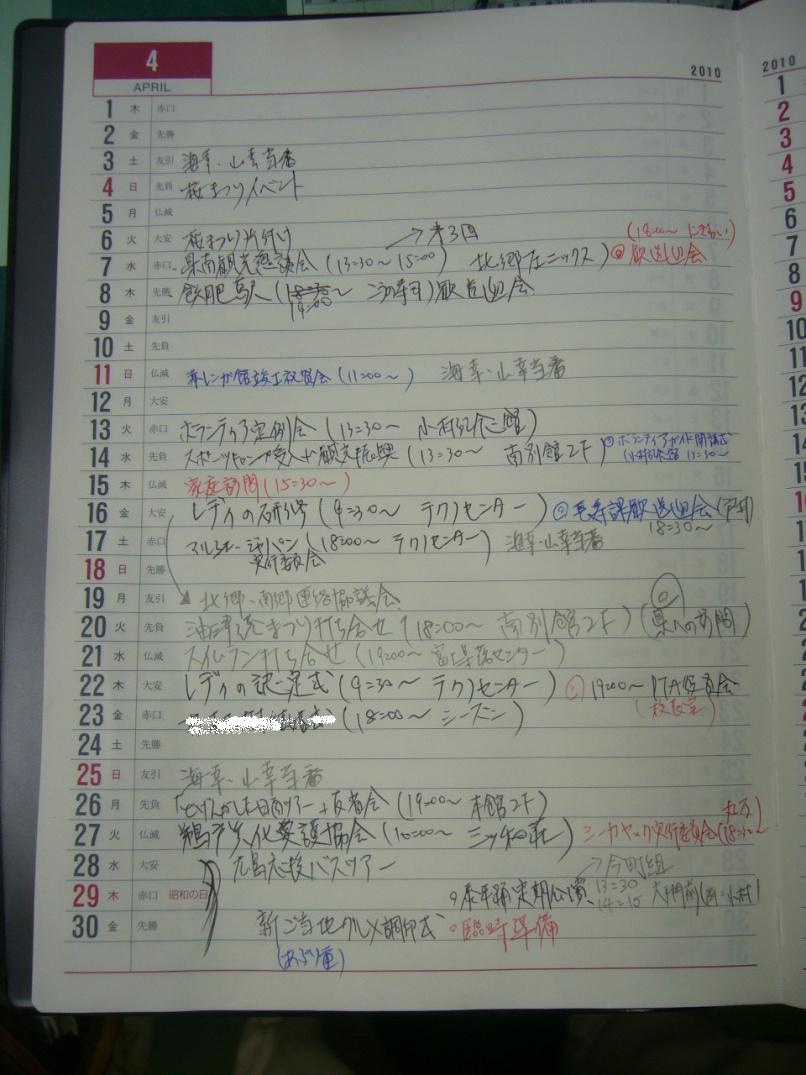 4
APRIL
2010
1 木 赤口
2 金 先勝
3 土 友引 海幸・山幸当番
4 日 先負 桜まつりイベント
5 月 仏滅
6 火 大安 桜まつり片付け →第3回 (18:00～ にぎわい)
7 水 赤口 県南観光懇話会 (13:30～15:00) 北郷フェニックス) 歓送迎会
8 木 先勝 飫肥駅 (18:00～ 14:00 ) 歓送迎会
9 金 友引
10 土 先負
11 日 仏滅 赤レンガ館竣工祝賀会 (11:00～ ) 海幸・山幸当番
12 月 大安
13 火 赤口 ボランティア定例会 (13:30～ 小村記念館)
14 水 先負 スポーツキャンプ受入れ観光振興 (13:30～ 南別館2F) ボランティアガイド開講式
(小村記念館 13:30～
15 木 仏滅 家庭訪問 (15:30～ )
16 金 大安 レディの研修 (9:30～ テクノセンター) 歓送迎会
18:30～
17 土 赤口 マルシェ・ジャパン (18:00～ テクノセンター) 海幸・山幸当番
実行委員会
18 日 先勝
19 月 友引 北郷・南郷連絡協議会
20 火 先負 油津港まつり打ち合せ (18:00～ 南別館2F) (県への訪問)
21 水 仏滅 打ち合せ (19:00～ センター)
22 木 大安 レディの認定式 (9:30～ テクノセンター) 19:00～ PTA役員会
23 金 赤口 (18:00～ シーズン) (校長室)
24 土 先勝
25 日 友引 海幸・山幸当番
26 月 先負 日南ツアー 反省会 (19:00～ 本館2F)
27 火 仏滅 鵜戸文化愛護協会 (10:00～ ) シーカヤック実行委員会(18:30～
28 水 大安 広島応援バスツアー →今町組
29 木 赤口 昭和の日 泰平踊定期公演 13:30
14:15 大手門前
30 金 先勝 新ご当地グルメ調印式 臨時準備
(あぶり重)
2010
1
2
3
4
5
6
7
8
9
10
11
12
13
14
15
16
17
18
19
20
21
22
23
24
25
26
27
28
29
30
31